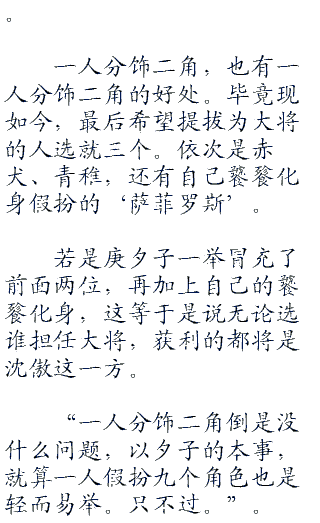 。
一人分饰二角，也有一
人分饰二角的好处。毕竟现
如今，最后希望提拔为大将
的人选就三个。依次是赤
犬、青稚，还有自己饕餮化
身假扮的‘萨菲罗斯’。
若是庚夕子一举冒充了
前面两位，再加上自己的饕
餮化身，这等于是说无论选
谁担任大将，获利的都将是
沈傲这一方。
“一人分饰二角倒是没
什么问题，以夕子的本事，
就算一人假扮九个角色也是
轻而易举。只不过。”。